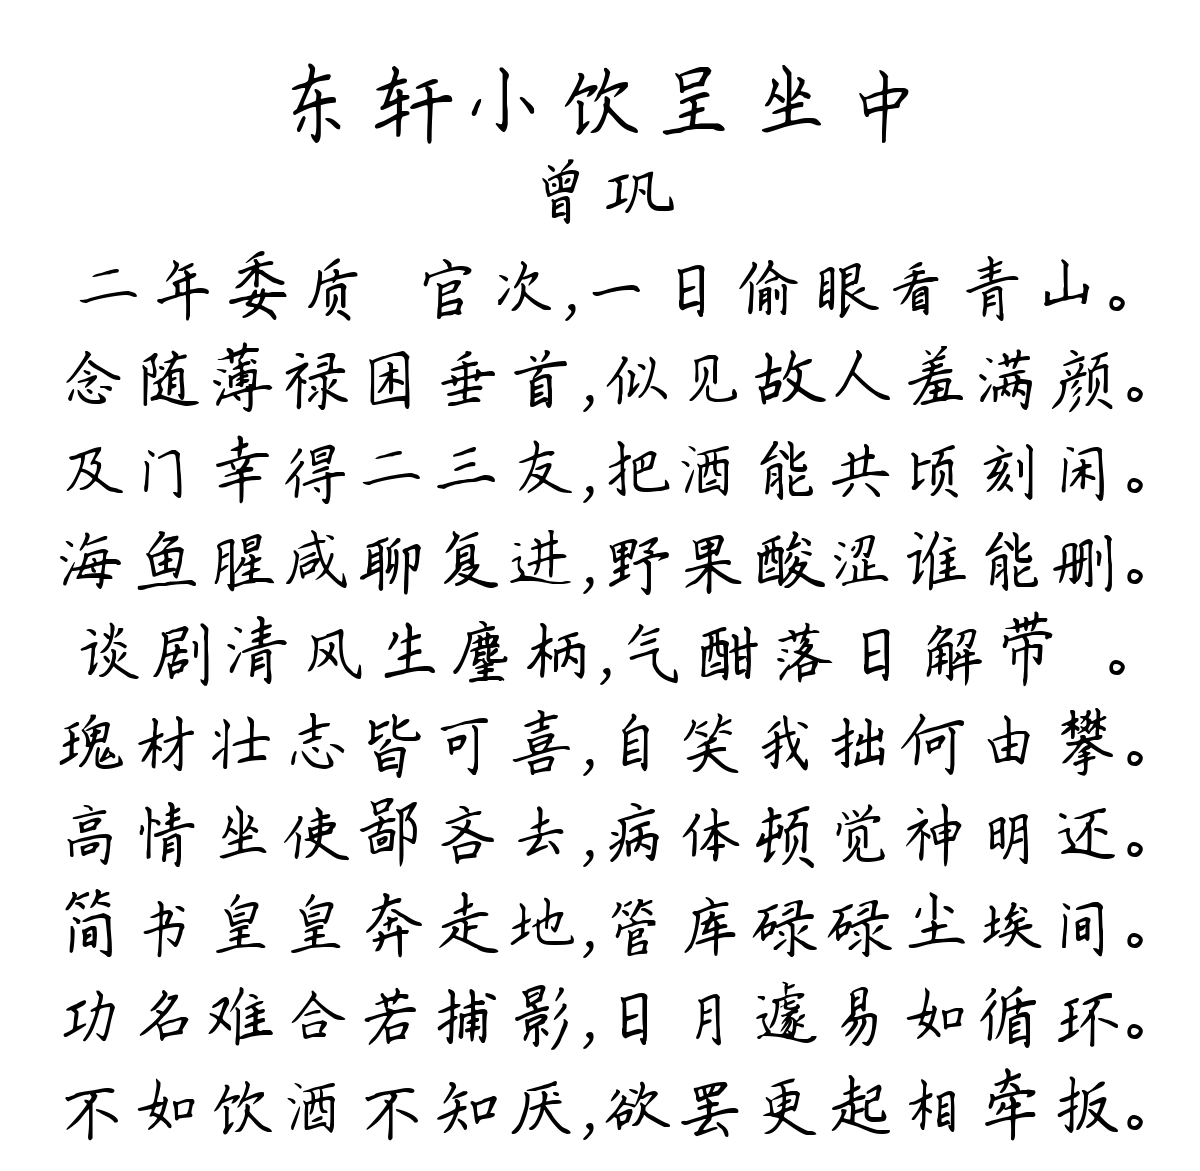 东轩小饮呈坐中
曾巩
二年委质 官次,一日偷眼看青山。
念随薄禄困垂首,似见故人羞满颜。
及门幸得二三友,把酒能共顷刻闲。
海鱼腥咸聊复进,野果酸涩谁能删。
谈剧清风生麈柄,气酣落日解带 。
瑰材壮志皆可喜,自笑我拙何由攀。
高情坐使鄙吝去,病体顿觉神明还。
简书皇皇奔走地,管库碌碌尘埃间。
功名难合若捕影,日月遽易如循环。
不如饮酒不知厌,欲罢更起相牵扳。